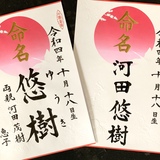 命名
悠樹
ゆうき
令和四年十月十八日生
両親 河田 茂樹
恵子
命名
河田悠樹
令和四年十月十八日生